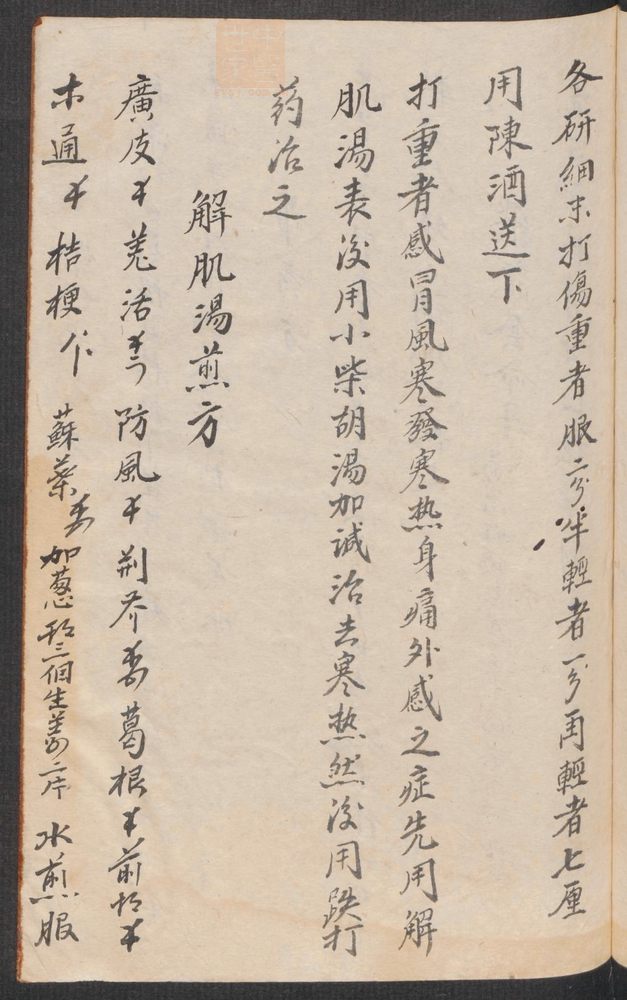 各研細末打傷重者服二分半輕者一分再輕者七厘
用陳酒送下
打重者感冒風寒發寒热身痛外感之症先用解
肌湯表後用小柴胡湯加減治去寒热然後用跌打
药治之
解肌湯煎方
廣皮 羌活 防風 荆芥 葛根 前胡
木通 桔梗 蘇葉 加葱 三個生姜二片 水煎服